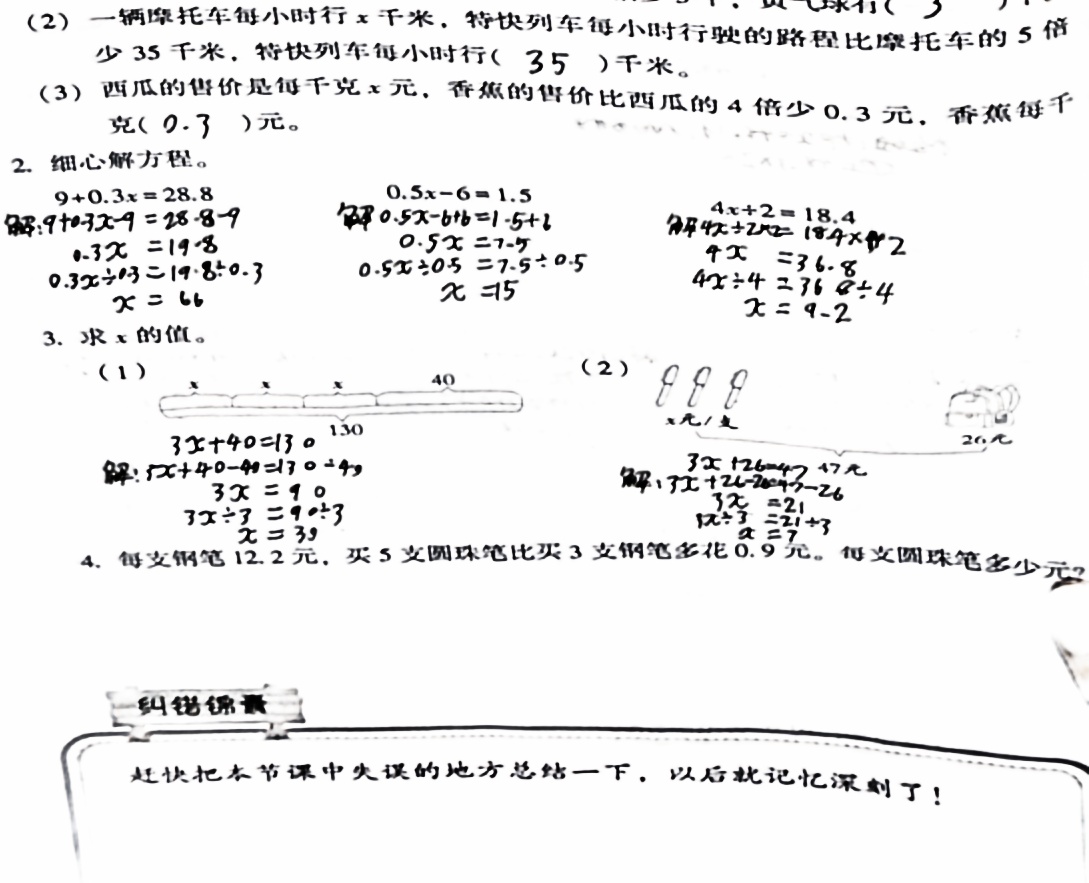 (2) 一辆摩托车每小时行 x 千米，特快列车每小时行驶的路程比摩托车的 5 倍
少 35 千米，特快列车每小时行( 35 )千米。
(3) 西瓜的售价是每千克 x 元，香蕉的售价比西瓜的 4 倍少 0.3 元，香蕉每千
克( 0.3 )元。
2. 细心解方程。
9+0.3x=28.8
解:9+0.3x-9=28.8-9
0.3x=19.8
0.3x÷0.3=19.8÷0.3
x=66
0.5x-6=1.5
解 0.5x-6+6=1.5+6
0.5x=7.5
0.5x÷0.5=7.5÷0.5
x=15
4x÷2=18.4
解 4x÷2×2=18.4×2
4x=36.8
4x÷4=36.8÷4
x=9.2
3. 求 x 的值。
(1)
x x x 40
130
3x+40=130
解:3x+40-40=130-40
3x=90
3x÷3=90÷3
x=30
(2)
x元/支
26元
47元
3x+26=47
解:3x+26-26=47-26
3x=21
3x÷3=21÷3
x=7
4. 每支钢笔 12.2 元，买 5 支圆珠笔比买 3 支钢笔多花 0.9 元。每支圆珠笔多少元?
纠错锦囊
赶快把本节课中失误的地方总结一下，以后就记忆深刻了!